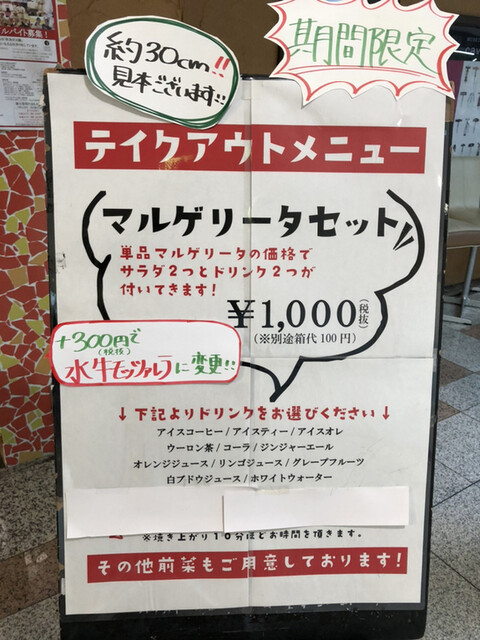 ルバイト募集!
約30cm!!
見本ございます!!
期間限定
テイクアウトメニュー
マルゲリータセット
単品マルゲリータの価格で
サラダ2つとドリンク2つが
付いてきます!
¥1,000(税抜)
(※別途箱代100円)
+300円で
(税抜)
水牛モッツァレラに変更!!
↓下記よりドリンクをお選びください↓
アイスコーヒー/アイスティー/アイスオレ
ウーロン茶/コーラ/ジンジャーエール
オレンジジュース/リンゴジュース/グレープフルーツ
白ブドウジュース/ホワイトウォーター
※焼き上がり10分ほどお時間を頂きます。
その他前菜もご用意しております!